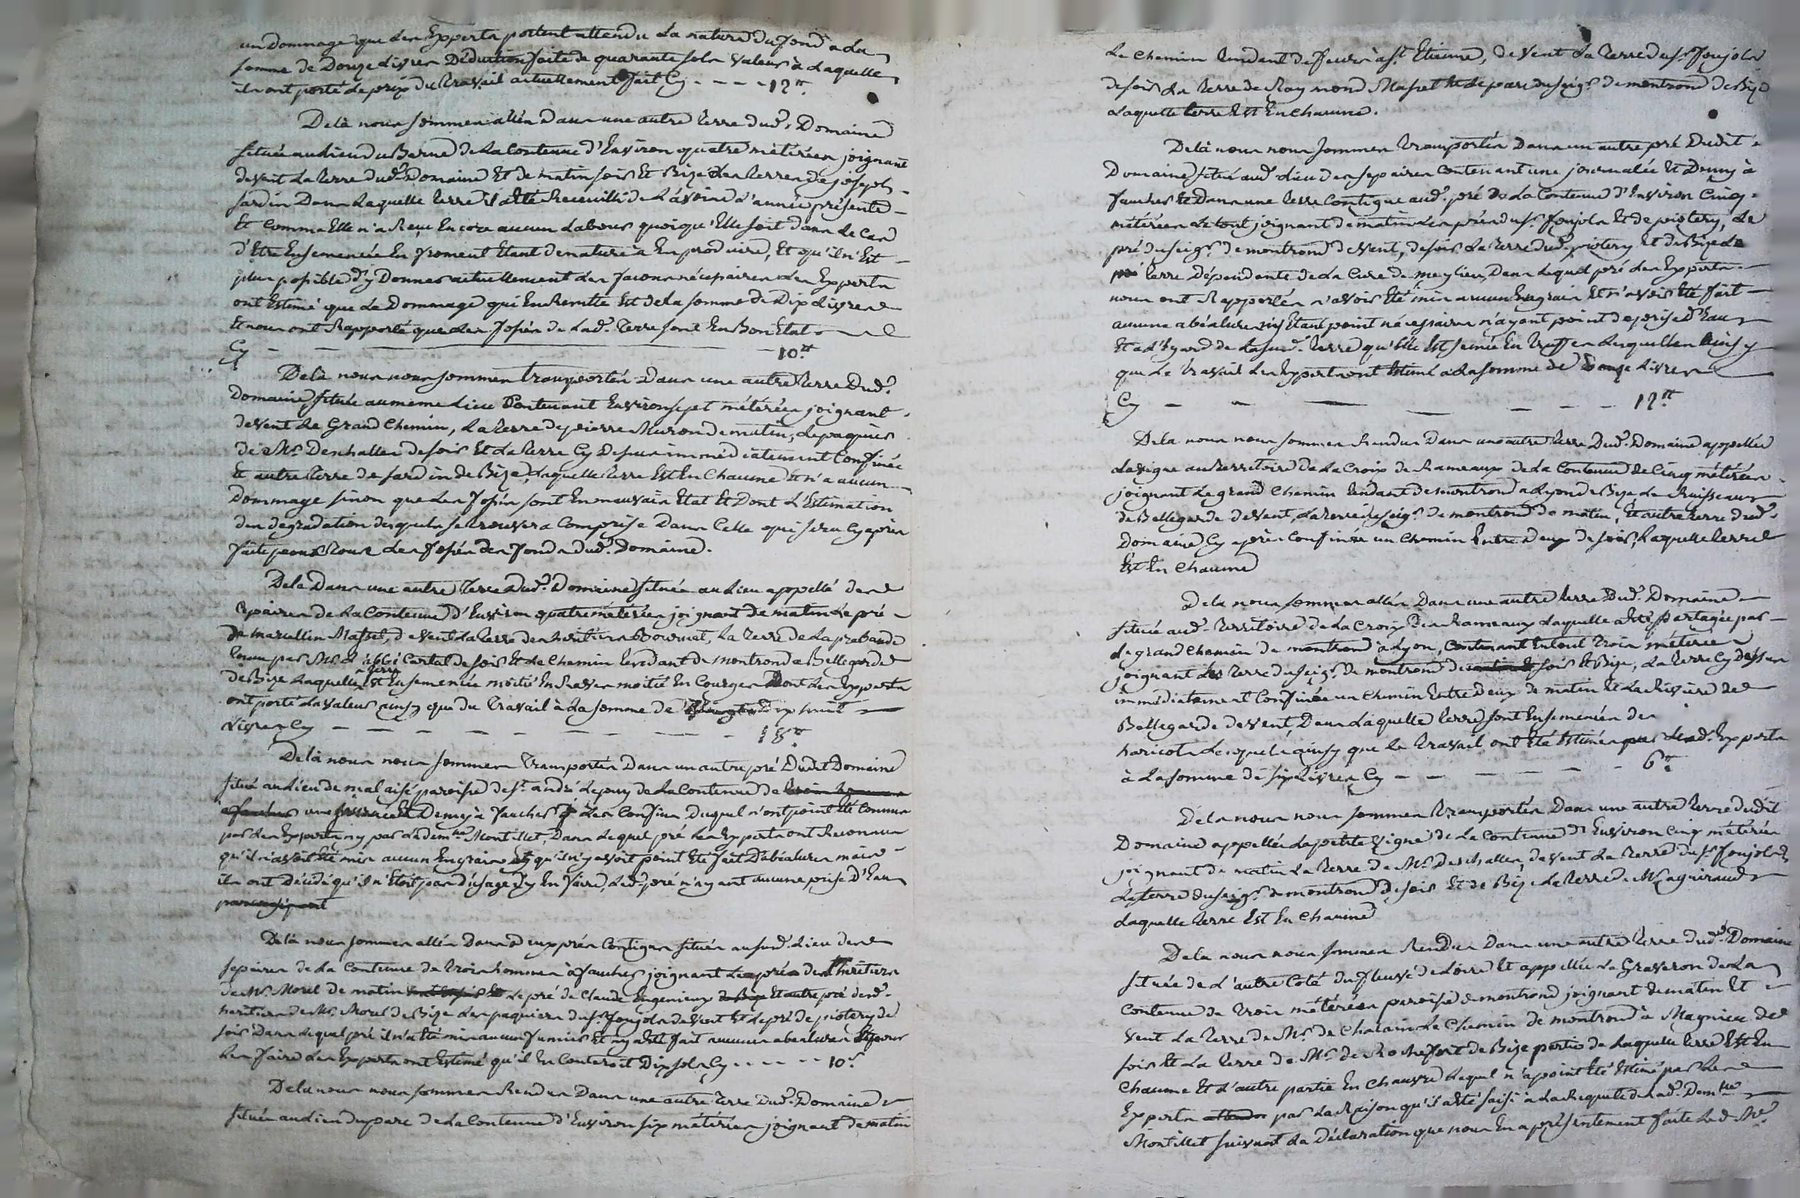 un Dommage que les Experts portent attendu la nature du fond a la
somme de Douze livres Déduction faite de quarante sols valeur à laquelle
ils ont porté le prix du travail actuellement fait Cy - - - - 12tt
Delà nous sommes allés Dans une autre terre dud. Domaine
située au lieu du Barme de la Contenue d'Environ quatre métérées joignant
de vent la terre dud. Domaine Et de matin soir Et Bize les terres de joseph
jardin Dans laquelle terre il a été Recueilli de l'avoine l'année présente
Et Comme Elle n'a Reçu Encore aucun Labour quoiqu'Elle soit dans le Cas
d'Etre Ensemencée En froment Etant de nature à En produire, Et qu'il n'Est
plus possible d'y Donner actuellement les façons nécessaires les Experts
ont Estimé que le Dommage qui En Resulte Est de la somme de Dix Livres
Et nous ont Rapporté que les fossés de lad. terre sont En Bon Etat
Cy - - - 10tt
Delà nous nous sommes transportés Dans une autre terre Dud.
Domaine située au meme Lieu Contenant Environ sept métérées joignant
de vent le Grand Chemin, la terre de pierre Muron de matin, le paquier
de Mr. Deschalles de soir Et la terre Cy dessus immédiatement Confinée
Et autre terre de jardin de Bize, laquelle terre Est En Chaume Et n'a aucun
Dommage sinon que les fossés sont En mauvais Etat Et Dont L'Estimation
des dégradations desquels se trouvera Comprise Dans Celle qui sera Cy après
faite pour tous les fossés des fonds dud. Domaine.
Delà Dans une autre terre dud. Domaine située au Lieu appellé des
Epaires de la Contenue d'Environ quatre métérées joignant de matin le pré
de marcellin Massel, de vent la terre des héritiers Bournat, la terre de la prebande
tenue par Mr. l'abbé Cartal de soir Et le Chemin tendant de montrond a Bellegarde
de Bize laquelle terre est Ensemencée moitié En Raves moitié En Courges Dont les Experts
ont porté la valeur ainsy que du travail à la somme de dix huit
Livres Cy - - - - - - - - 18tt
Delà nous nous sommes transportés Dans un autre pré Dudit Domaine
situé au Lieu de malaisé paroisse de St. andré le puy de la Contenue de trois hommes
a faucher une journée Et Demy à faucher Les Confins Duquel n'ont point Eté Connus
par les Experts ny par lad. demlle Montillet, Dans lequel pré les Experts ont Reconnu
qu'il n'avoit Eté mis aucun Engrais et qu'il n'y avoit point Eté fait D'abéalures mais
ils ont Décidé qu'il n'Etoit pas d'usage d'y En faire led. pré n'ayant aucune prise D'Eau
Delà nous sommes allés Dans deux prés Contigus situés au susd. Lieu des
sepaires de la Contenue de trois hommes à faucher joignant les prés des héritiers
de Mr. Morel de matin le pré de Claude Engenieux Et autre pré desd.
heritiers de Mr. Morel de Bize les paquiers du Sr. foujols de vent Et le pré de piotery de
soir Dans lequel pré il n'a été mis aucun fumier Et n'y a été fait aucunes abéalures
les faire les Experts ont Estimé qu'il En Couteroit Dix sols Cy - - - - 10s
Delà nous nous sommes Rendus Dans une autre terre Dud. Domaine
située au Lieu du parc de la Contenue d'Environ six métérées joignant de matin
Le Chemin tendant de feurs à St. Etienne, de vent la terre du Sr. foujols
de soir la terre de Raymond Massel Et de pars du seigr. de montrond de Bize
Laquelle terre Est En Chaume.
Delà nous nous sommes transportés Dans un autre pré Dudit
Domaine situé aud. Lieu des sepaires Contenant une journalée Et Demy à
faucher Et dans une terre Contigue aud. pré de la Contenue d'Environ Cinq
métérées Le tout joignant de matin les prés du Sr. foujols Et de piotery, Le
pré du seigr. de montrond de vent, de soir la terre dud. piotery et de Bize la
terre Dépendante de la Cure de meylieu, Dans lequel pré les Experts
nous ont Rapportés n'avoir Eté mis aucun Engrais Et n'avoir Eté fait
aucune abéalure n'y Etant point nécessaires n'ayant point de prise d'Eau
Et a l'Egard de la susd. terre qu'Elle Est semée En truffes Lesquelles ainsy
que Le travail les Experts ont Estimé à la somme de Douze Livres
Cy - - - - - - - 12tt
Delà nous nous sommes Rendus Dans une autre terre Dud. Domaine appellée
La vigne au territoire de la Croix de Rameaux de la Contenue de Cinq métérées
joignant le grand Chemin tendant de montrond a Lyon de Bize Le Ruisseau
de Bellegarde de vent, la terre du seigr. de montrond de matin, Et autre terre dud.
Domaine Cy après Confinée un Chemin Entre Deux de soir, Laquelle terre
Est En Chaume
Delà nous sommes allés Dans une autre terre Dud. Domaine
située aud. territoire de la Croix des Rameaux Laquelle a Eté partagée par
Le grand Chemin de montrond à Lyon, Contenant En tout trois métérées
joignant les terre du seigr. de montrond de soir Et Bize, La terre Cy Dessus
immédiatement Confinée un Chemin Entre Deux de matin Et la Rivière de
Bellegarde de vent, Dans Laquelle terre sont Ensemencés des
haricots Lesquels ainsy que le travail ont Eté Estimés par lesd. Experts
à la somme de six Livres Cy - - - - - - 6tt
Delà nous nous sommes transportés Dans une autre terre dudit
Domaine appellée La petite vigne de la Contenue d'Environ Cinq métérées
joignant de matin la terre de Mr. Deschalles, de vent La terre du Sr. foujols
La terre du seigr. de montrond de soir Et de Bize La terre de Mr. aguiraud
Laquelle terre Est En Chaume
Delà nous nous sommes Rendus Dans une autre terre dud. Domaine
située de L'autre Coté du fleuve de Loire Et appellée Le Graveron de La
Contenue de trois métérées paroisse de montrond joignant de matin Et
vent La terre de Mr. de Chalain Le Chemin de montrond à Magnieu de
soir Et La terre de Mr. de Rochefort de Bize partie de Laquelle terre Est En
Chaume Et L'autre partie En Chanvre Lequel n'a point Eté Estimé par Les
Experts par la Raison qu'il a été saisi à la Requete de lad. Demlle
Montillet suivant La Déclaration que nous En a présentement faite Led. Mr.